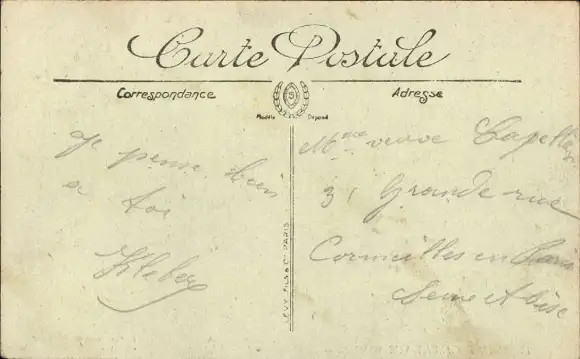 Carte Postale
Correspondance
Adresse
Modèle Déposé
Je pense bien
a toi
Kleber
LEVY FILS & Cie PARIS
Mme veuve Capelle
31 Grande rue
Cormeilles en Paris
Seine et Oise